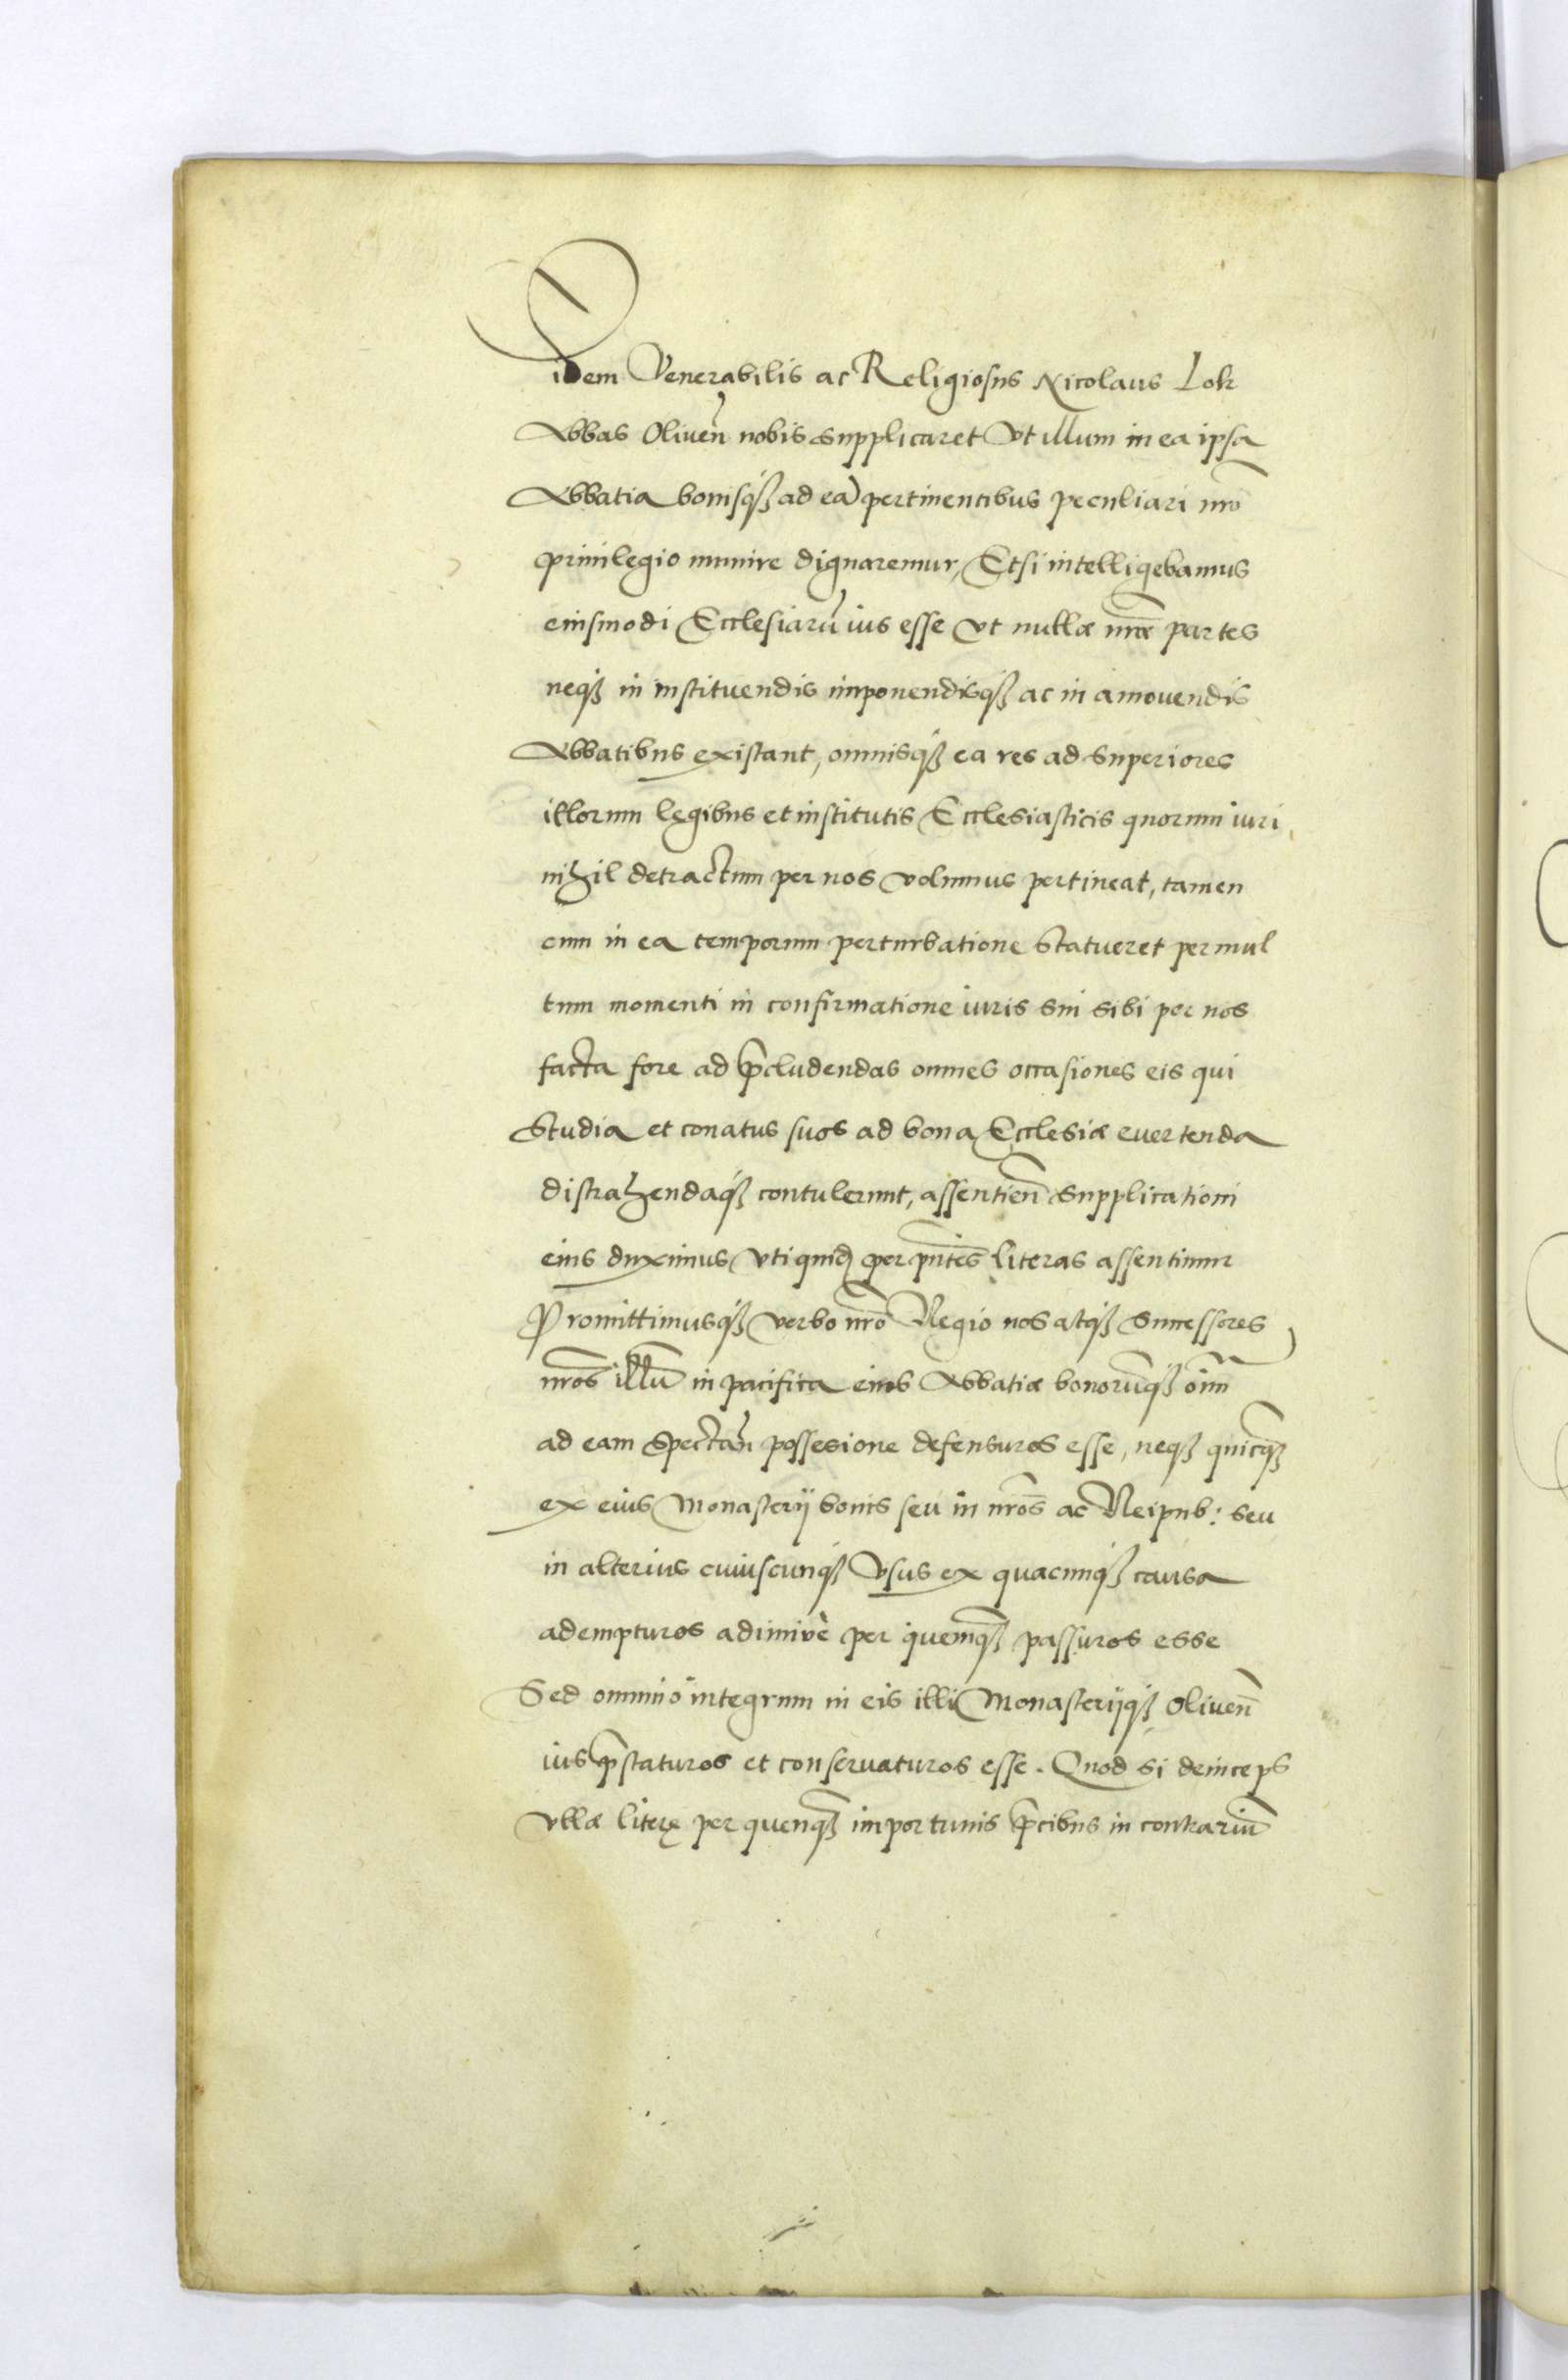 idem Venerabilis ac Religiosus Nicolaus Lok
Abbas Oliveñ nobis supplicaret Vt illum in ea ipsa
Abbatia bonisqꝫ ad eã pertinentibus peculiari nr̃o
priuilegio munire dignaremur, Etsi intelligebamus
eiusmodi Ecclesiarũ ius esse vt nullæ nr̃æ partes
neqꝫ in instituendis imponendisqꝫ ac in amouendis
Abbatibus existant, omnisqꝫ ea res ad Superiores
illorum legibus et institutis Ecclesiasticis quorum iuri
nihil detractum per nos volumus pertineat, tamen
cum in ea temporum perturbatione statueret permul
tum momenti in confirmatione iuris sui sibi per nos
facta fore ad p̃cludendas omnes occasiones eis qui
studia et conatus suos ad bona Ecclesiæ euertenda
distrahendaqꝫ contulerunt, assentieñ supplicationi
eius duximus vti quidē per pñtes literas assentimur
Promittimusqꝫ verbo nr̃o Regio nos atqꝫ Successores
nr̃os illũ in pacifica eius Abbatiæ bonorũqꝫ oĩm
ad eam spectañ possesione defensuros esse, neqꝫ quicq̃ꝫ
ex eius Monasterij bonis seu in nr̃os ac Reipub: seu
in alterius cuiuscunqꝫ vsus ex quacunqꝫ causa
adempturos adimivè per quemq̃ꝫ passuros esse
Sed omnino integrum in eis illi Monasterijqꝫ Oliveñ
ius p̃staturos et conseruaturos esse. Quod si deinceps
vllæ literę per quenq̃ꝫ importunis p̃cibus in contrariũ